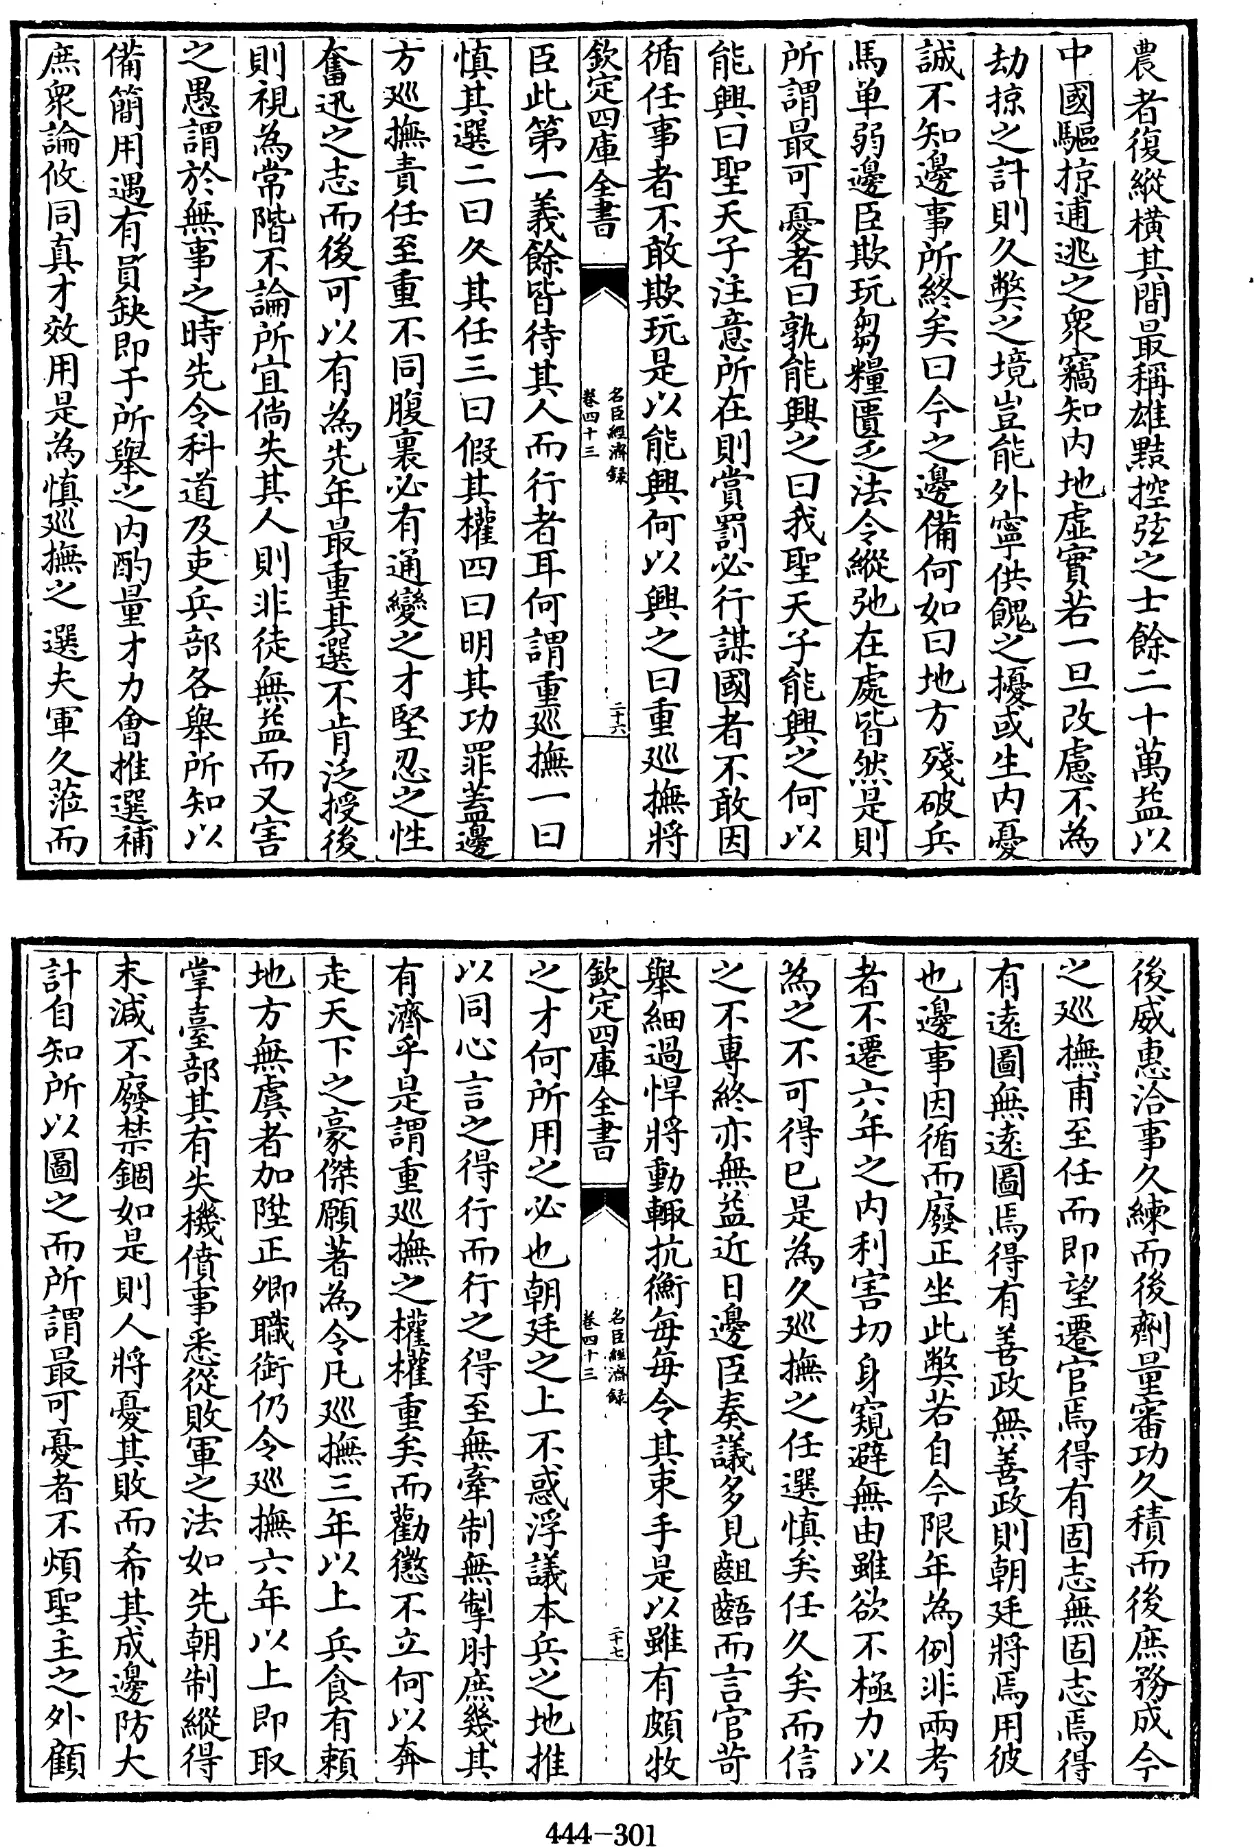 農者復縱橫其間最稱雄黠控弦之士餘二十萬益以
中國驅掠逋逃之衆竊知内地虚實若一旦改慮不為
劫掠之計則久弊之境豈能外寧供餽之擾或生内憂
誠不知邊事所終矣曰今之邊備何如曰地方殘破兵
馬单弱邊臣欺玩芻糧匱乏法令縱弛在處皆然是則
所謂最可憂者曰孰能興之曰我聖天子能興之何以
能興曰聖天子注意所在則賞罰必行謀國者不敢因
循任事者不敢欺玩是以能興何以興之曰重巡撫將
欽定四庫全書
名臣經濟録
卷四十三
二十六
臣此第一義餘皆待其人而行者耳何謂重巡撫一曰
慎其選二曰久其任三曰假其權四曰明其功罪葢邊
方巡撫責任至重不同腹裏必有通變之才堅忍之性
奮迅之志而後可以有為先年最重其選不肯泛授後
則視為常階不論所宜倘失其人則非徒無益而又害
之愚謂於無事之時先令科道及吏兵部各舉所知以
備簡用遇有員缺即于所舉之内酌量才力會推選補
庶衆論攸同真才效用是為慎巡撫之選夫軍久蒞而
後威惠洽事久練而後劑量審功久積而後庶務成今
之巡撫甫至任而即望遷官焉得有固志無固志焉得
有遠圖無遠圖焉得有善政無善政則朝廷將焉用彼
也邊事因循而廢正坐此弊若自今限年為例非兩考
者不遷六年之内利害切身窺避無由雖欲不極力以
為之不可得已是為久巡撫之任選慎矣任久矣而信
之不専終亦無益近日邊臣奏議多見齟齬而言官苛
舉細過悍將動輙抗衡每每令其束手是以雖有頗牧
欽定四庫全書
名臣經濟録
卷四十三
二十七
之才何所用之必也朝廷之上不惑浮議本兵之地推
以同心言之得行而行之得至無牽制無掣肘庶幾其
有濟乎是謂重巡撫之權權重矣而勸懲不立何以奔
走天下之豪傑願著為令凡巡撫三年以上兵食有頼
地方無虞者加陞正卿職銜仍令巡撫六年以上即取
掌臺部其有失機僨事悉從敗軍之法如先朝制縱得
末減不廢禁錮如是則人將憂其敗而希其成邊防大
計自知所以圖之而所謂最可憂者不煩聖主之外顧
444-301